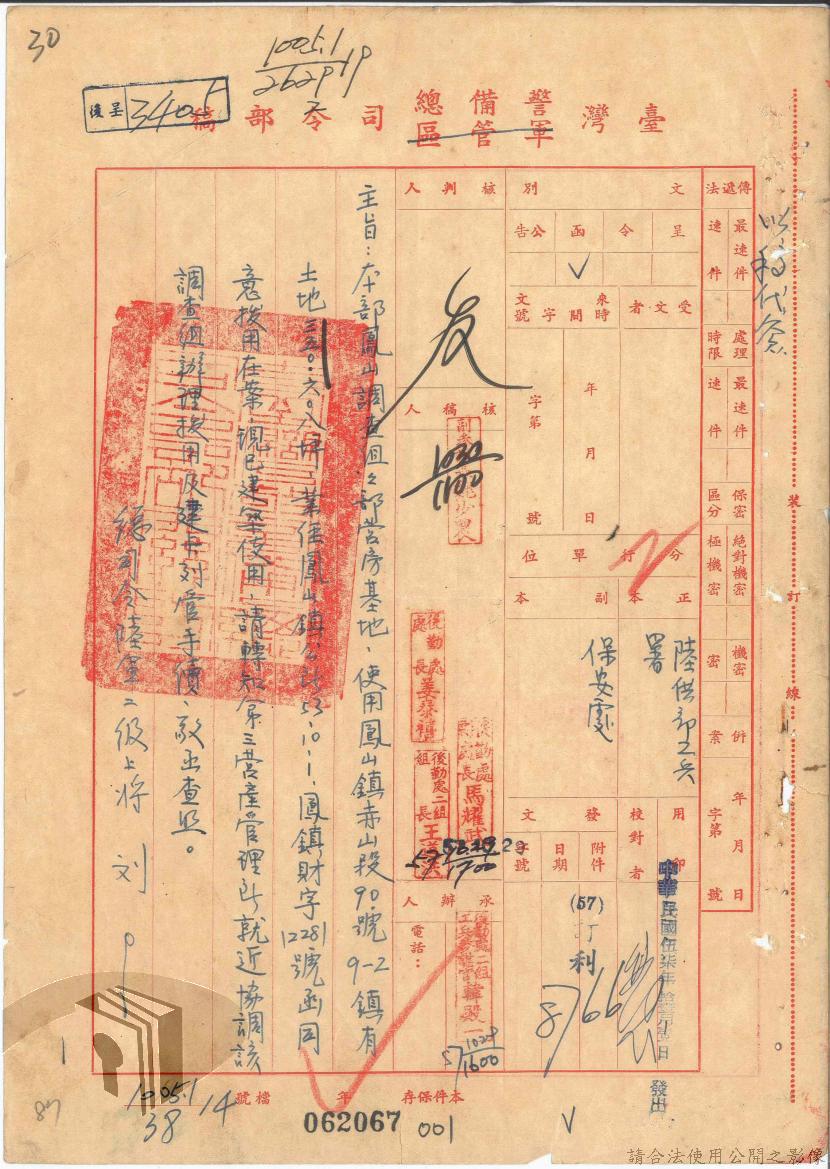 30
1005.1
2629
臺灣警備總司令部稿
軍管區
後呈
340
以稿代簽
傳遞法
最速件
速件
處理時限
最速件
速件
保密區分
絕對機密
極機密
機密
密
併案
年月日
字第號
文別
呈
令
函
公告
✓
受文者
來文時間字號
年月日
字第號
分行單位
正本
副本
陸供部工兵署
保安處
用印
校對者
發文
附件
日期
字號
中華民國伍柒年
發出
(57)
利
8766
核判人
發
核稿人
1030
1100
後勤處處長姜
後勤處
馬耀武
後勤處二組組長王
1700
承辦人
電話：
後勤處二組
韓毅
57
1029
1600
主旨：本部鳳山調查組之部營房基地，使用鳳山鎮赤山段90號9-2鎮有
土地三三〇.六〇八坪，業經鳳山鎮公所53.10.1.鳳鎮財字12281號函同
意撥用在案，現已建築使用，請轉知第三營產管理所就近協調該
調查組辦理撥用及建卡列管手續，敬函查照。
總司令陸軍二級上將 劉
本件保存年
檔號
1005.1
38
14
062067
001
裝
訂
線
請合法使用公開之影像